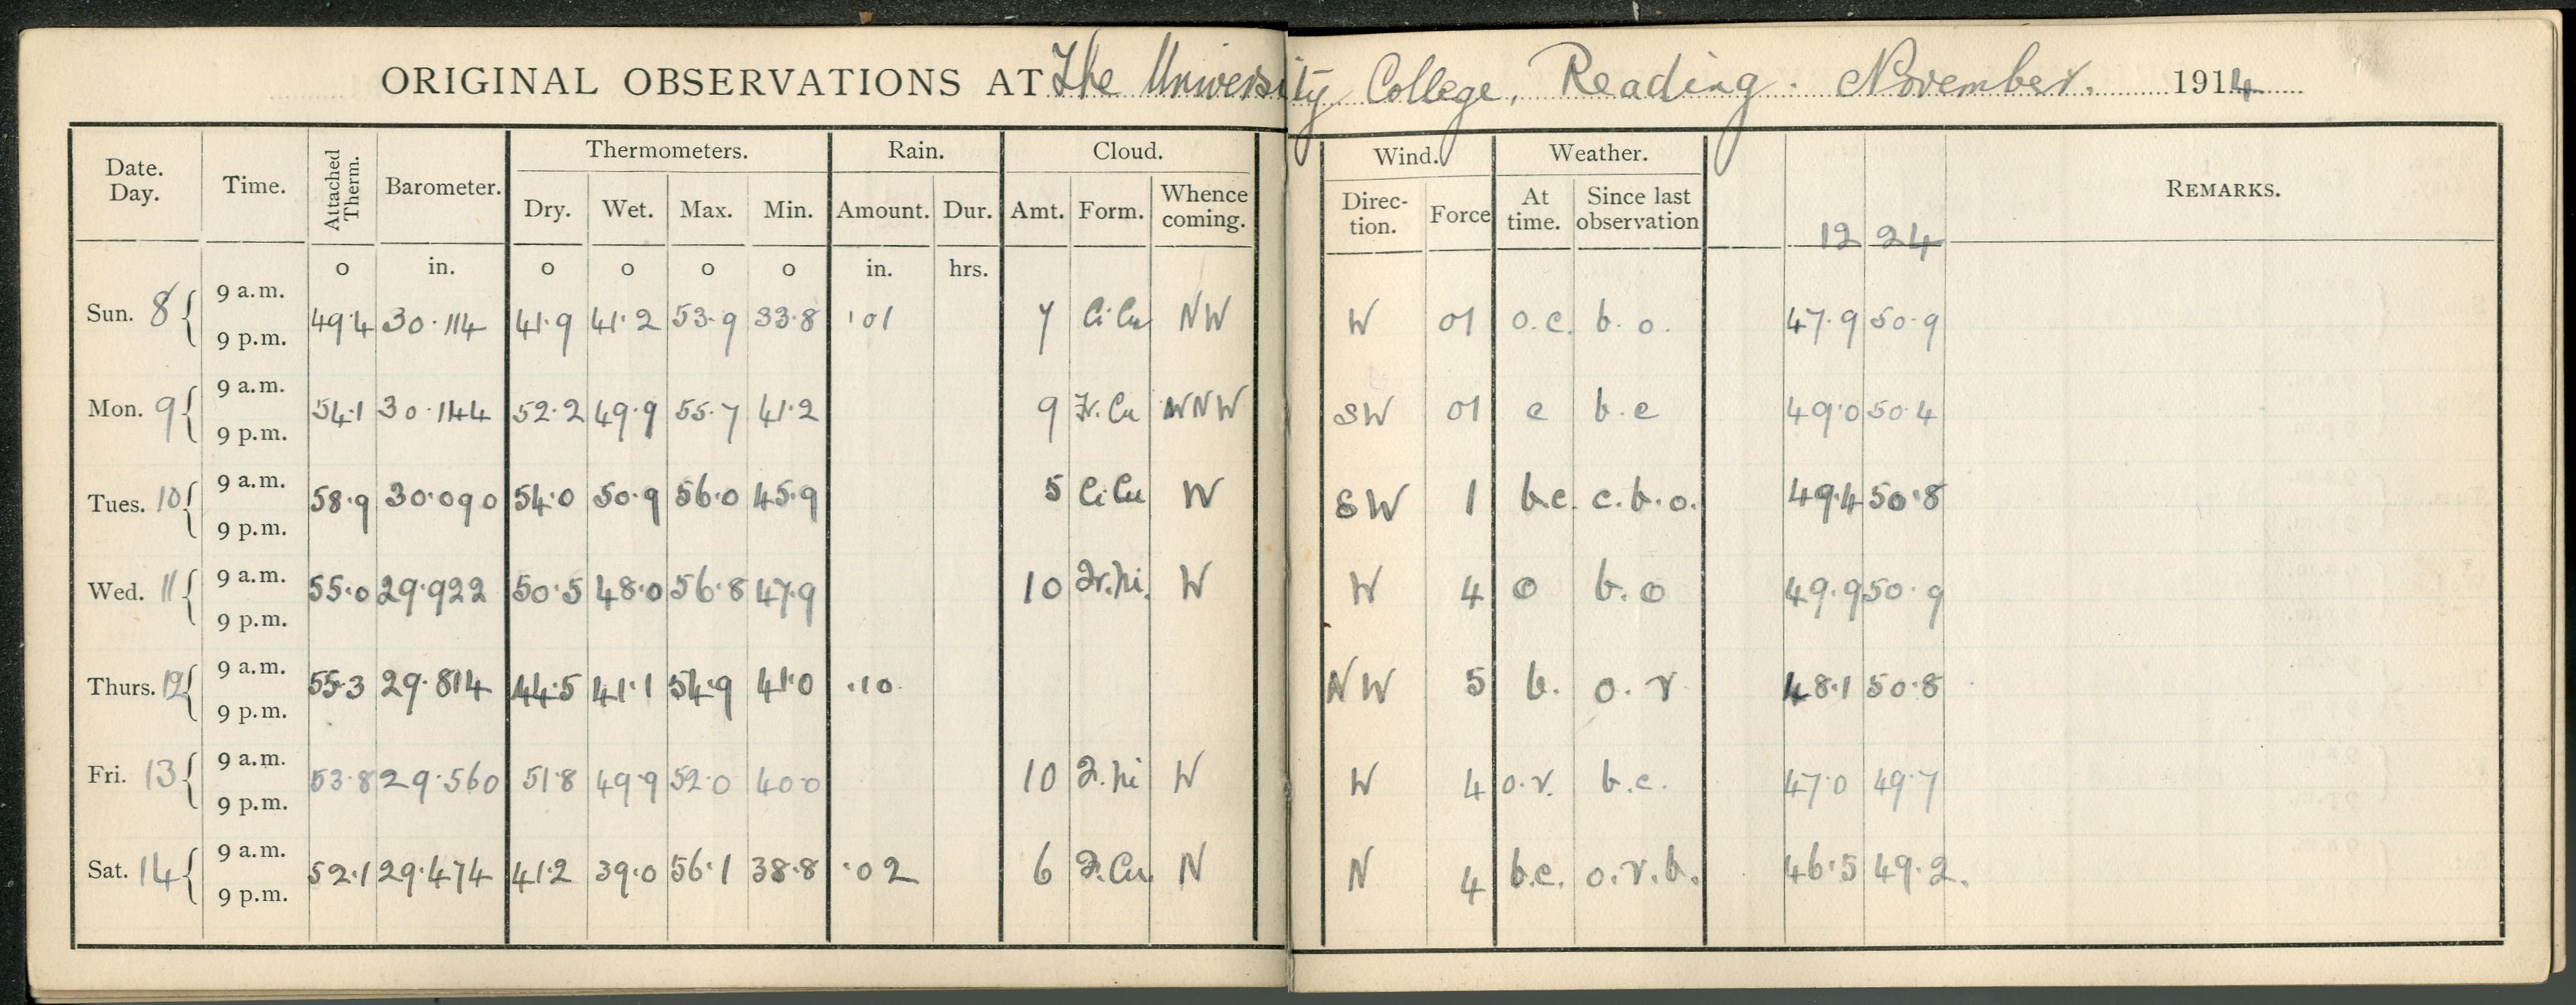 ORIGINAL OBSERVATIONS AT The University College, Reading. November. 1914
Date. Day. Time. Attached Therm. Barometer. Thermometers. Rain. Cloud. Wind. Weather. REMARKS.
Dry. Wet. Max. Min. Amount. Dur. Amt. Form. Whence coming. Direc- tion. Force At time. Since last observation 12 24
o in. o o o o in. hrs.
Sun. 8 { 9 a.m. 9 p.m. 49.4 30.114 41.9 41.2 53.9 33.8 .01 7 Ci Cu NW W 01 o.c. b.o. 47.9 50.9
Mon. 9 { 9 a.m. 9 p.m. 54.1 30.144 52.2 49.9 55.7 41.2 9 Fr. Cu WNW SW 01 c b.c 49.0 50.4
Tues. 10 { 9 a.m. 9 p.m. 58.9 30.090 54.0 50.9 56.0 45.9 5 Ci Cu W SW 1 b.c. c.b.o. 49.4 50.8
Wed. 11 { 9 a.m. 9 p.m. 55.0 29.922 50.5 48.0 56.8 47.9 10 Fr. Ni. W W 4 o b.o 49.9 50.9
Thurs. 12 { 9 a.m. 9 p.m. 55.3 29.814 44.5 41.1 54.9 41.0 .10 NW 5 b. o.r 48.1 50.8
Fri. 13 { 9 a.m. 9 p.m. 53.8 29.560 51.8 49.9 52.0 40.0 10 F. Ni W W 4 o.r. b.c. 47.0 49.7
Sat. 14 { 9 a.m. 9 p.m. 52.1 29.474 41.2 39.0 56.1 38.8 .02 6 F. Cu. N N 4 b.c. o.r.b. 46.5 49.2.